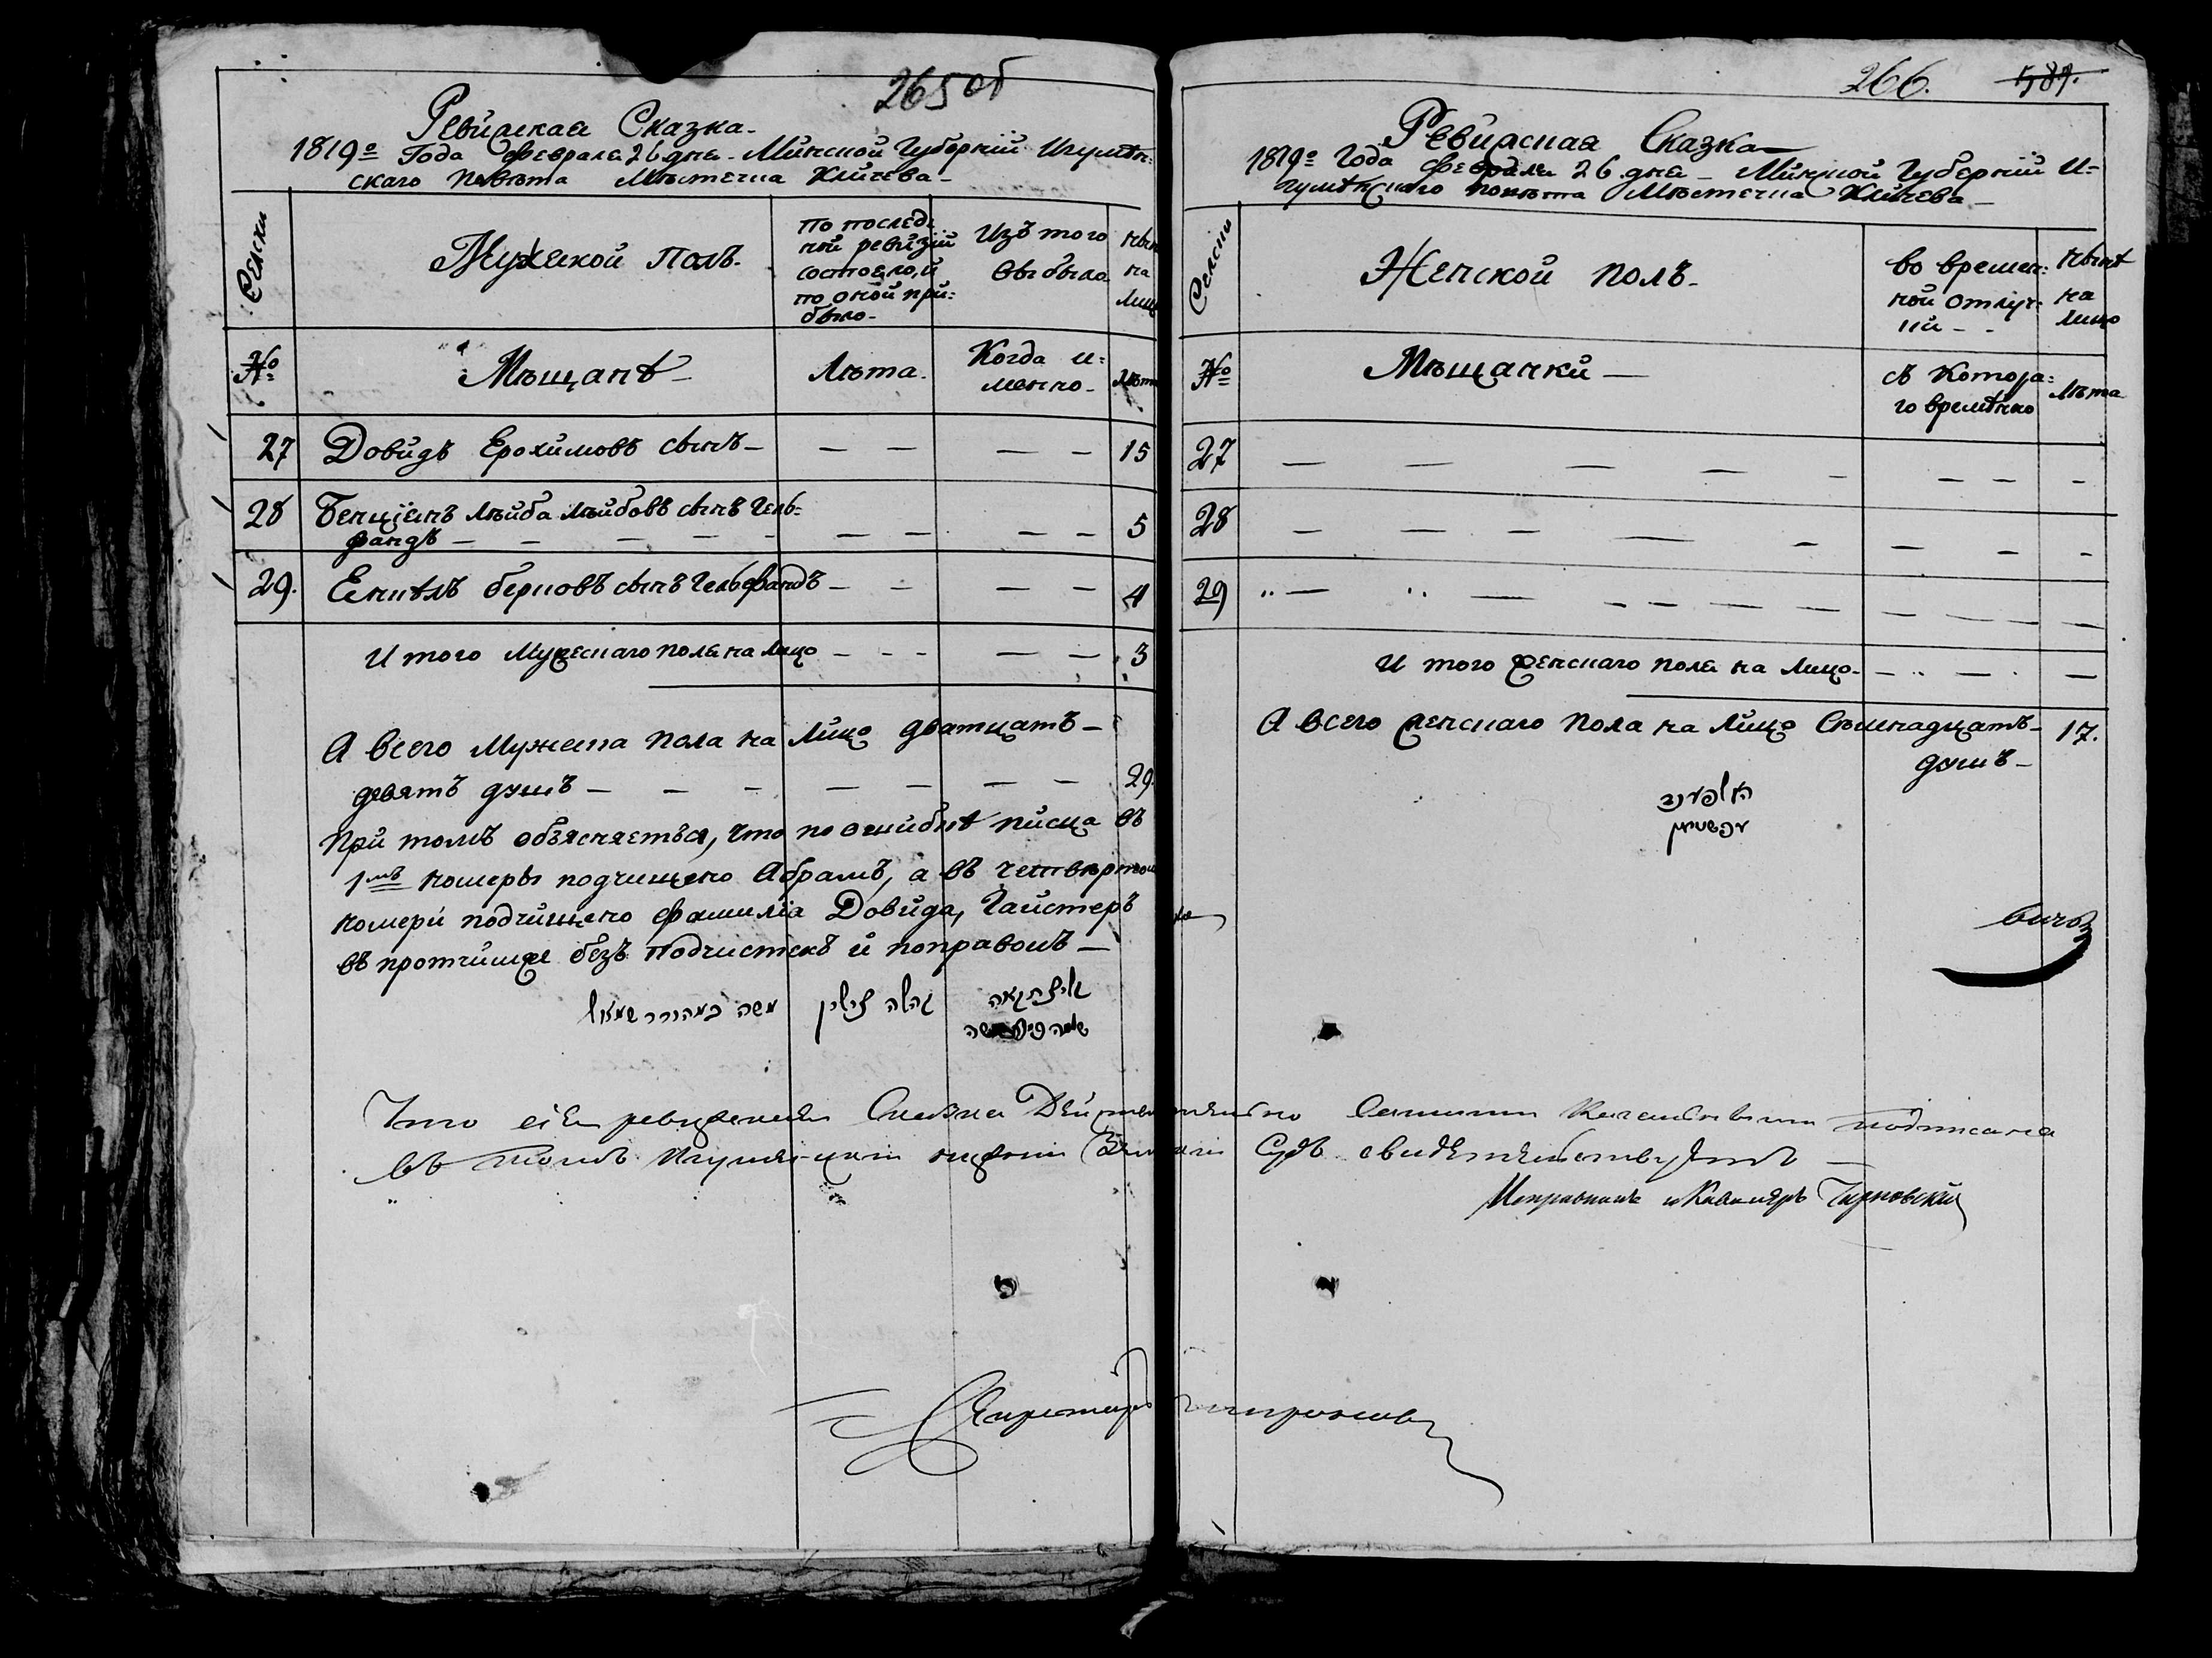 265 об
Ревизская Сказка
1819го Года февраля 26 дня Минской Губернии Игумен:
скаго Повѣта Мѣстечка Кличева
Семьи
Мужеской Полъ.
По послед:
ной ревизіи
состояло, и
по оной при:
было
Изъ того
выбыло
нынѣ
на
лицо
№
Мѣщанѣ
Лѣта.
Когда и:
менно
Лѣта
27 Довидъ Ерохимовъ сынъ 15
28 Бенціенъ Лейба Лейбовъ сынъ Гель:
фандъ 5
29. берковъ сынъ Гельфандъ 4
И того Мужескаго пола на Лицо 3
А всего Мужеска пола на Лицо дватцать
девять душъ 29.
При томъ объясняеться, что по ошибкѣ писца въ
1мъ номеры подчищено Абрамъ, а въ четвертом
номери подчищено фамиліа Довида, Гайстеръ
въ протчимже безъ подчистекъ и поправокъ
משה
Что сія ревизская Сказка Действительно
въ томъ Игуменскій нижній Земскій Судъ свидѣтельствуетъ
Секретарь
266. 589.
Ревизская Сказка
1819го Года февраля 26 дня Минской Губерніи И=
гуменскаго повѣта Мѣстечка Кличева
Семьи
Женской полъ
во времен:
ной отлуч:
ки
нынѣ
на
лицо
№
Мѣщанки
съ котора:
го времѣнно
Лѣта
27
28
29
И того женскаго пола на лицо
А всего женскаго пола на Лицо Семнадцать 17.
душъ
подписана
Исправникъ и Кавалеръ